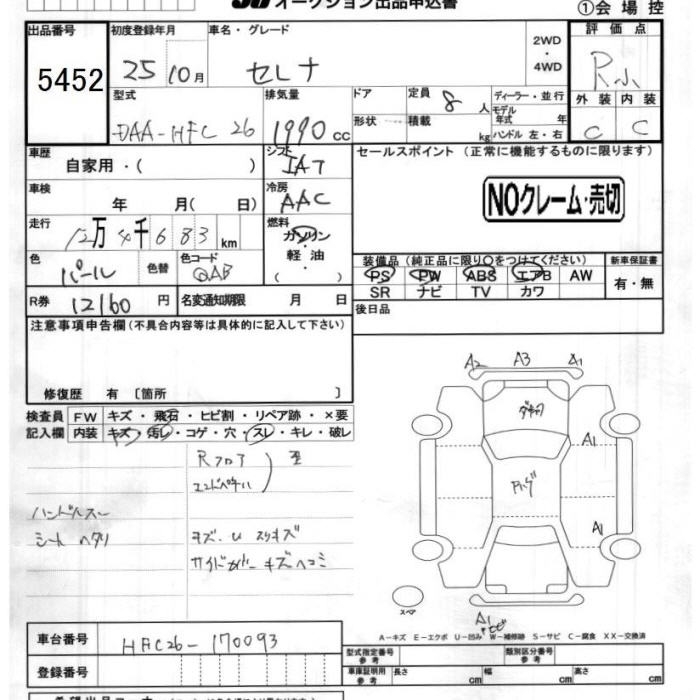 オークション出品申込書
①会場控
出品番号
5452
初度登録年月
25 10月
車名・グレード
セレナ
2WD
・
4WD
評価点
R小
外装 内装
C C
型式
DAA-HFC 26
排気量
1990 cc
ドア
形状
定員 8 人
積載 kg
ディーラー・並行
モデル年式 年
ハンドル 左・右
車歴
自家用・( )
シフト
IAT
車検
年 月( 日)
冷房
AAC
走行
12万4千683 km
燃料
ガソリン
軽油
・
( )
色
パール
色替
色コード
QAB
R券
12160 円
名変通知期限 月 日
セールスポイント (正常に機能するものに限ります)
NOクレーム・売切
装備品(純正品に限り○をつけてください)
PS PW ABS エアB AW
SR ナビ TV カワ
新車保証書
有・無
後日品
注意事項申告欄(不具合内容等は具体的に記入して下さい)
修復歴 有 〔箇所 〕
検査員記入欄
FW キズ・飛石・ヒビ割・リペア跡・×要
内装 キズ・汚レ・コゲ・穴・スレ・キレ・破レ
Rフロア
エンドパネル
歪
ハンドルスレ
シート ヘタリ
キズ・U スリキズ
サイドカバー キズヘコミ
A2 A3 A1
A1
A1
スペア
A1
A-キズ E-エクボ U-凹み W-補修跡 S-サビ C-腐食 XX-交換済
車台番号
HFC26-170093
登録番号
型式指定番号
参考
類別区分番号
参考
車庫証明用
参考
長さ cm
幅 cm
高さ cm